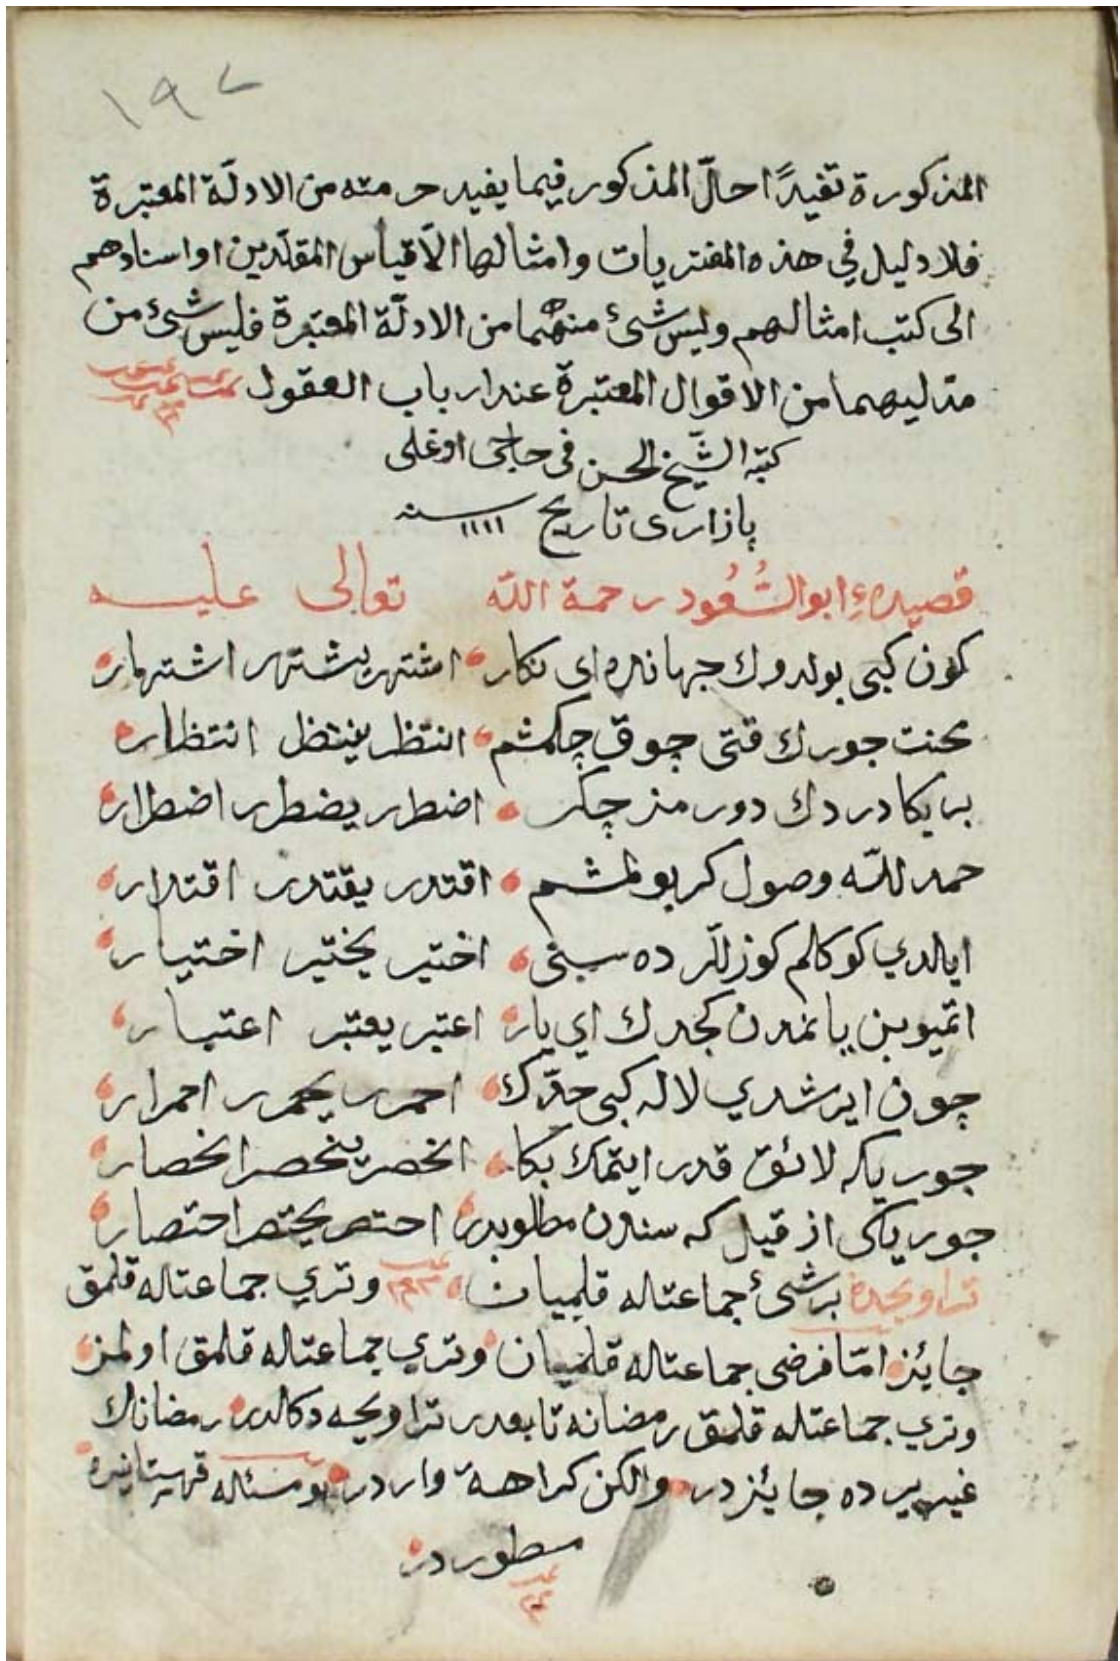 ١٩٧
المذكورة تقيدًا احالّ المذكور فيما يفيد حرمته من الادلّة المعتبرة
فلا دليل في هذه المفتريات وامثالها الّا قياس المقلّدين او اسنادهم
الى كتب امثالهم وليس شئ منهما من الادلّة المعتبرة فليس شئ من
مدليهما من الاقوال المعتبرة عند ارباب العقول
كتبه الشّيخ الحسن فى حاجى اوغلى
پازارى تاريخ سنه ١١١١
قصيدهءِ ابو السُّعُود رحمة اللّه تعالى عليه
كون كبى بولدوك جهانده اى نكار اشتهر يشتهر اشتهار
محنت جورك قتى چوق چكمشم انتظر ينتظر انتظار
بر يكا دردك دورمز چكر اضطرر يضطرر اضطرار
حمد للّه وصول كر بولمشم اقتدر يقتدر اقتدار
ايالدي كوكلم كوزللّر ده سنى اختير يختير اختيار
اتميوبن يانمدن كجدك اي يار اعتبر يعتبر اعتبار
چون ايرشدي لاله كبى خدّك احمرر يحمرر احمرار
جور يكه لائق قدر ايتمك بكا انحصر ينحصر انحصار
جور ياكى از قيل كه سندن مطلوبدر احتصر يحتصر احتصار
تراويحده برشئ جماعتاله قلميان وتري جماعتاله قلمق
جايئز امّا فرضى جماعتاله قلميان وتري جماعتاله قلمق اولمز
وتري جماعتله قلمق رمضانه تابعدر تراويحه دكالدر رمضانك
غيريرده جايئزدر والكن كراهة واردر بو مسئاله قهستانيده
مسطوردر